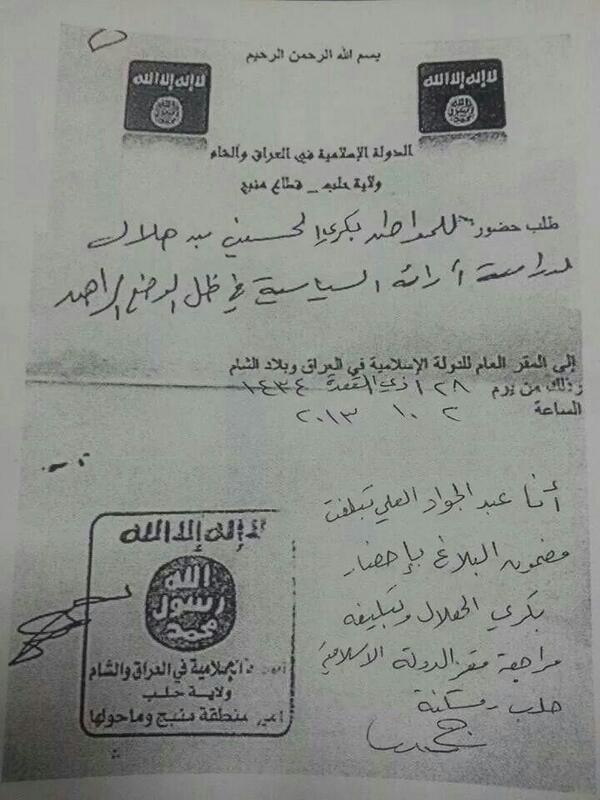 بسم الله الرحمن الرحيم
لا إله إلا الله
الله
رسول
محمد
لا إله إلا الله
الله
رسول
محمد
الدولة الإسلامية في العراق والشام
ولاية حلب _ قطاع منبج
طلب حضور للمواطن بكري الحسيني
لدراسة أرائه السياسية في ظل الوضع الراهن
إلى المقر العام للدولة الإسلامية في العراق وبلاد الشام
وذلك من يوم ٢٨ ذي القعدة ١٤٣٤
الساعة ٢ ١٠ ٢٠١٣
أنا عبد الجواد العلي تبلغت
مضمون البلاغ بإحضار
بكري الهلال وتبليغه
مراجعة مقر الدولة الاسلامية
حلب
لا إله إلا الله
الله
رسول
محمد
الإسلامية في العراق والشام
ولاية حلب
أمير منطقة منبج وماحولها